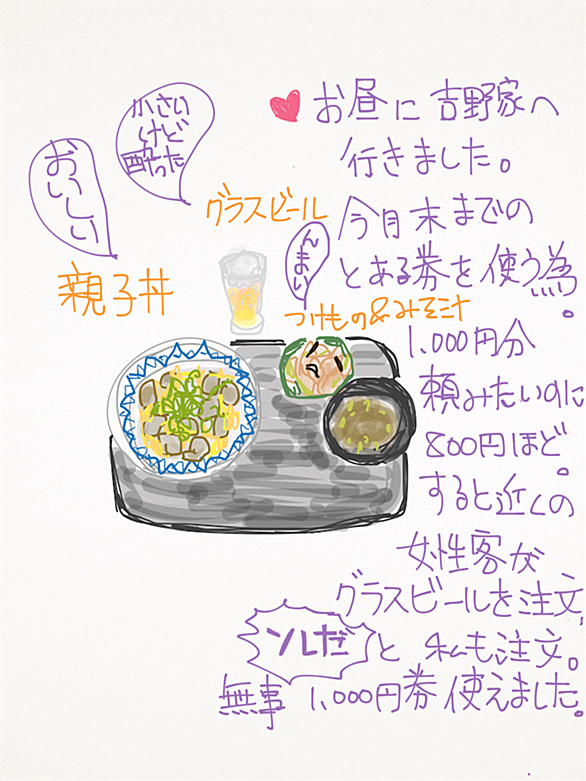 お昼に吉野家へ
行きました。
今月末までの
とある券を使う為。
1,000円分
頼みたいのに
800円ほど。
すると近くの
女性客が
グラスビールを注文,
ソレだ と 私も注文。
無事 1,000円券使えました。
小さい
けど
酔った
おいしい
グラスビール
んまい
親子丼
つけもの&みそ汁